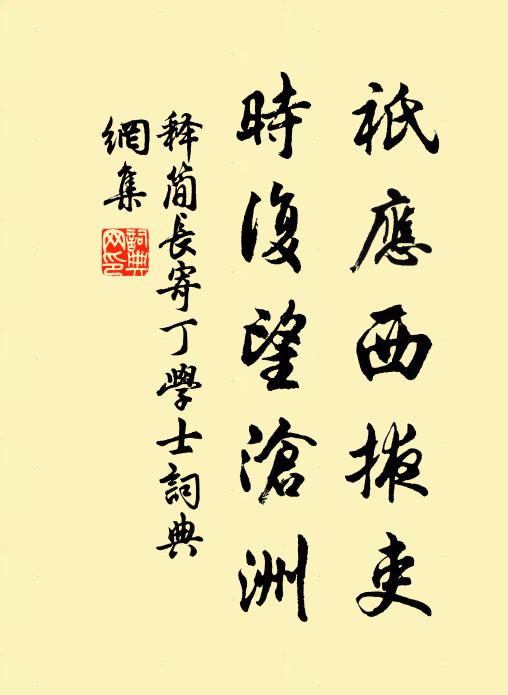 祇應西掖吏
時復望滄洲
释简長寄丁學士詞典
網集
詞典網印